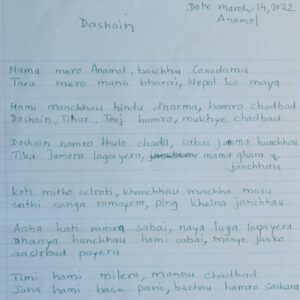 Date March 14, 2022
Anamol
Dashain
Nama mero Anamol, baschhu Canadama
Tara mero mana bharai, Nepal ko maya
Hami manchhau hindu dharma, hamro chadbad
Dashain, Tihar, Teej hamro, mukhye chadbad
Dashain hamro thulo chada, sabai jamma hunchhau
Tika Jamera lagayera, mama ghara
janchhau
kati mitho selroti, khanchhau machha masu
sathi sanga ramayera, ping khelna janchhau
Aaha kati ramra sabai, naya luga lagayera
Dhanya hunchhau hami sabai, manye janko
aasirbad payera
Timi hami milera, manau chadbad
Jaha hami base pani, bachau hamro saskara